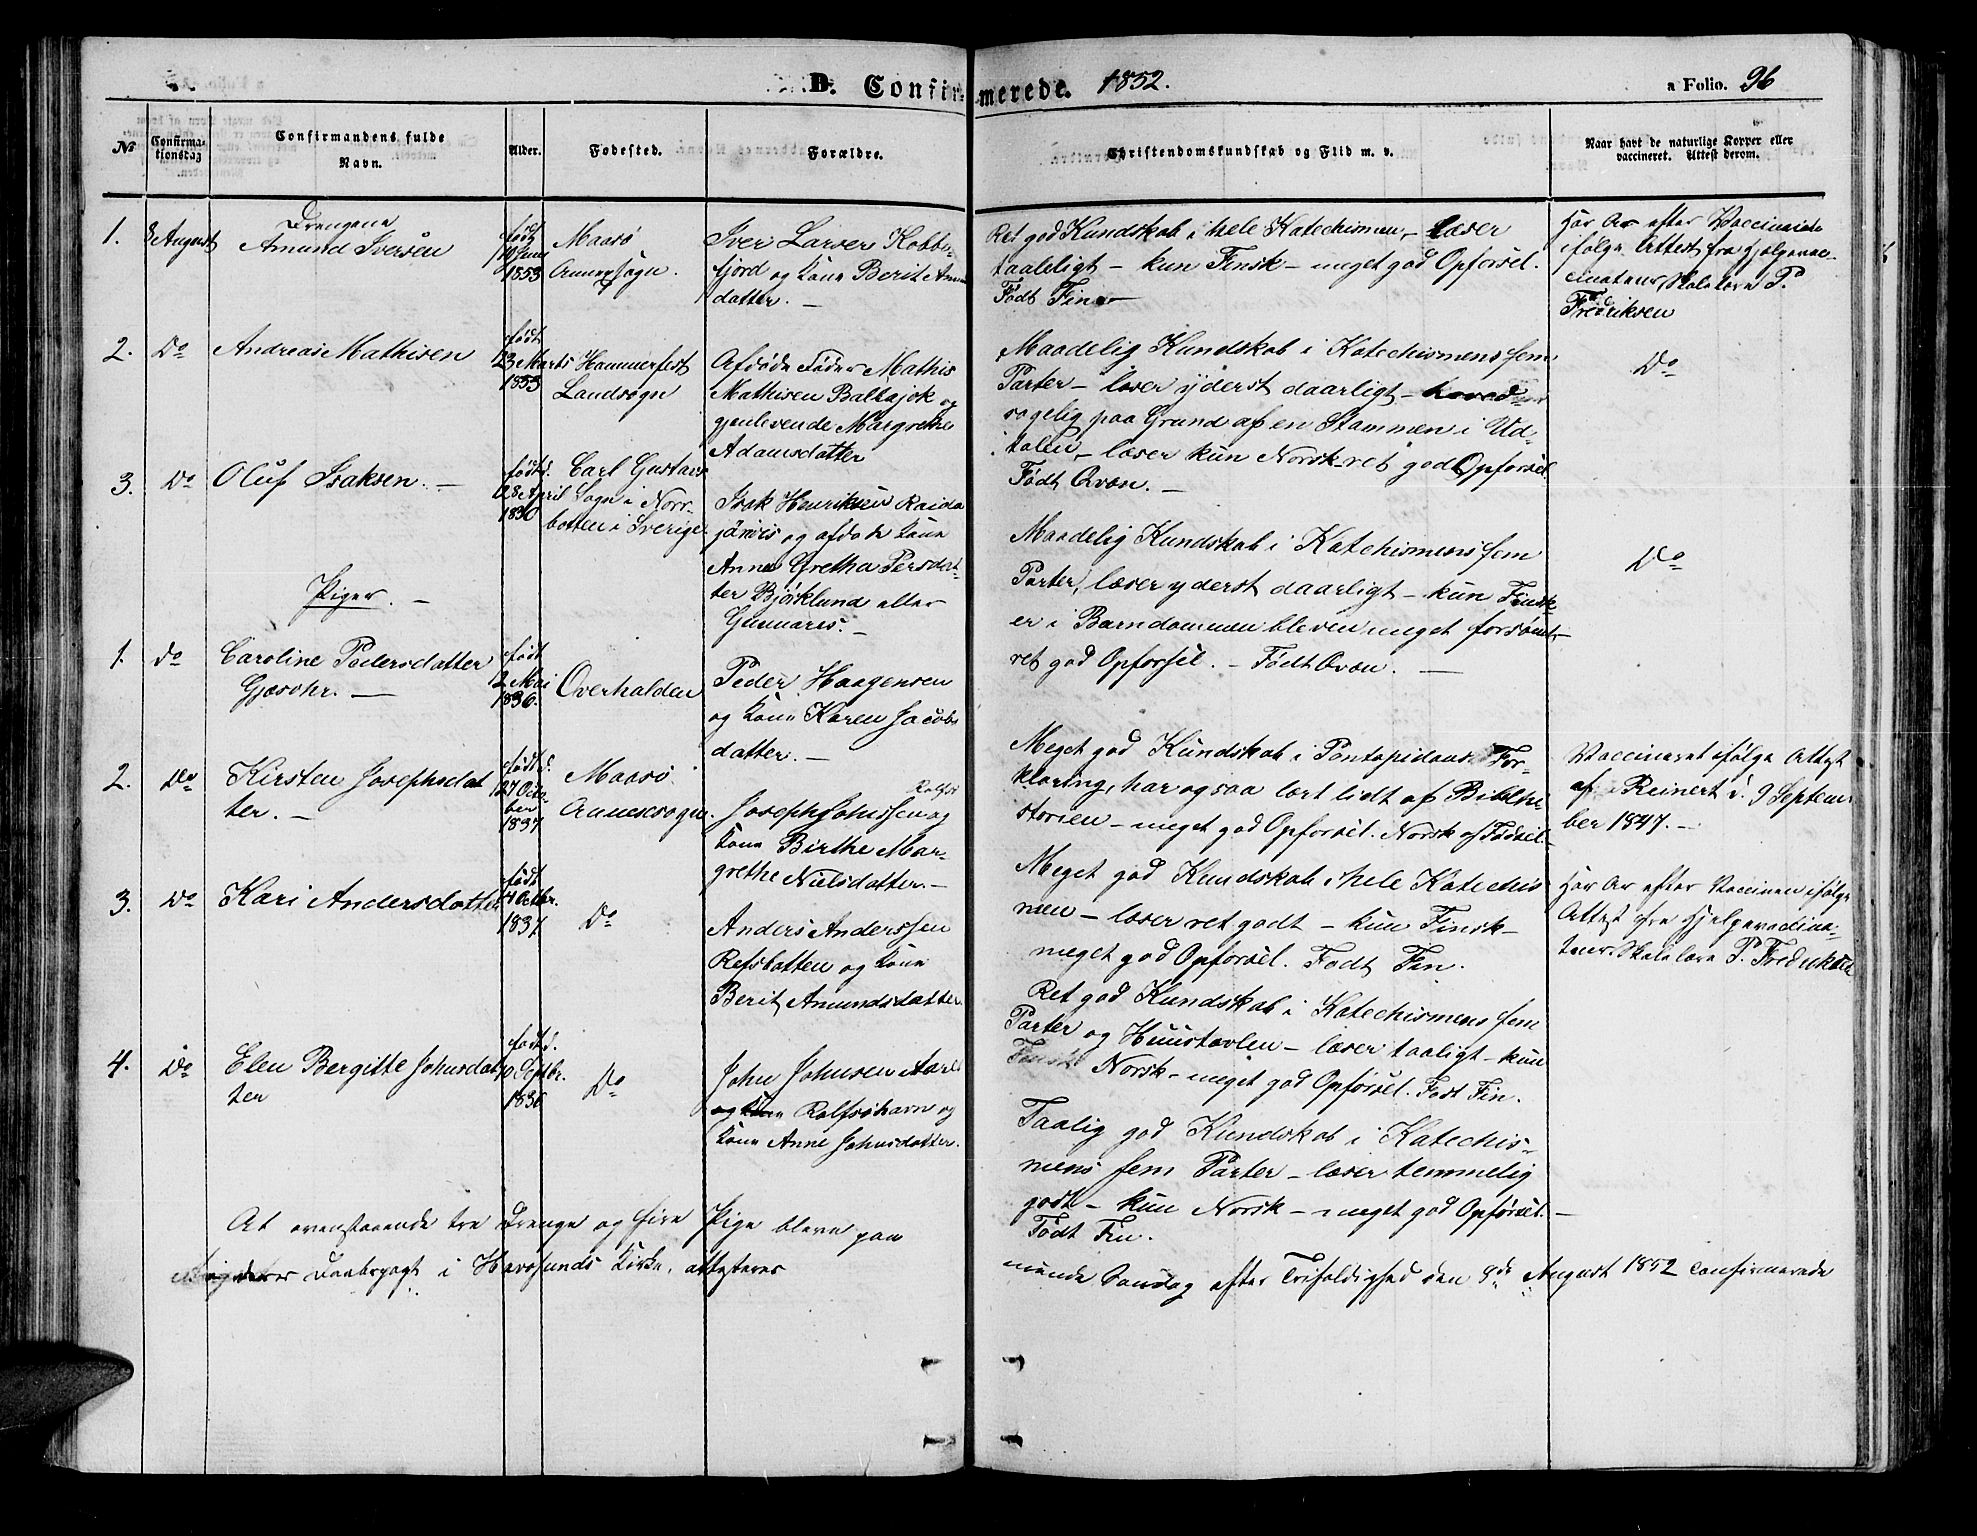 D. Confirmerede. 1852.
a Folio. 96
No
Confirmationsdag
Confirmandens fulde Navn.
Alder.
Fødested.
Forældre.
Christendomskundskab og Flid m. v.
Naar havt de naturlige Kopper eller vaccineret. Attest derom.
Drengene
1. 8 August Amund Iversen
født
1853
Maasø
Annexsogn.
Iver Larsen Kobbe-
fjord og Kone Berit Amun
datter. —
Ret god Kundskab i hele Katechismen, — læser
taaleligt — kun Finsk — meget god Opførsel.
Født Fin
Har Ar efter Vaccinen
ifølge Attest fra Hjelpevac-
cinateur, Skolelærer P.
Fredriksen
2. Do Andreas Mathisen
født
23 Marts
1853
Hammerfest
Landsogn
Afdøde Fader Mathis
Mathisen Baltajok og
gjenlevende Margrethe
Adamsdatter
Maadelig Kundskab i Katechismens fem
Parter — læser yderst daarligt — hoved-
sagelig paa Grund af en Stammen i Ud-
talen, — læser kun Norsk — ret god Opførsel
Født Qvæn. —
Do
3. Do Oluf Isaksen. —
født d.
28 April
1830
Carl Gustavs
Sogn i Norr-
botten i Sverige.
Isak Henriksen Raida
järvis og afdøde Kone
Anna Gretha Persdat-
ter Bjørklund eller
Gunnares. —
Maadelig Kundskab i Katechismens fem
Parter, læser yderst daarligt — kun Finsk
er i Barndommen bleven meget forsømt —
ret god Opførsel. — Født Qvæn. —
Do
Piger. —
1. Do Caroline Pedersdatter
Gjæsohr. —
født
2 Mai
1836.
Overhalden
Peder Haagensen
og Kone Karen Jacobs
datter. —
Meget god Kundskab i Pontopidans For-
klaring, har ogsaa lært lidt af Bibelhi
storien — meget god Opførsel. Norsk af Fødsel. —
Vaccineret ifølge Attest
af Reinert d. 9 Septem
ber 1847. —
2. Do Kirsten Josephsdat
ter. —
født d.
27 Octo-
ber
1837
Maasø
Annexsogn.
Rolfsø
Joseph Johnssen og
Kone Birthe Mar-
grethe Nielsdatter. —
Meget god Kundskab i hele Katechis
men — læser ret godt — kun Finsk —
meget god Opførsel. Født Fin.
Har Ar efter Vaccinen ifølge
Attest fra Hjelpevaccina-
teur, Skolelærer P. Fredriksen
3. Do Kari Andersdatter
født
4 Octbr.
1837.
Do
Anders Anderssen
Refsbotten og Kone
Berit Amundsdatter
Ret god Kundskab i Katechismens fem
Parter og Huustavlen — læser taaligt — kun
Norsk — meget god Opførsel. Født Fin.
4. Do Elen Bergitte Johnsdat
ter
født d.
10 Septbr.
1836
Do
John Johnsen
og Kone Rolfsøhavn og
Kone Anne Johnsdatter.
Taalig god Kundskab i Katechis-
mens fem Parter — læser temmelig
godt — kun Norsk — meget god Opførsel. —
Født Fin.
At ovenstaaende tre Drenge og fire Pige bleve paa niende Søndag efter Trefoldighed den 8de August 1852 confirmerede
deres Daabspagt i Havøsunds Kirke, attesteres